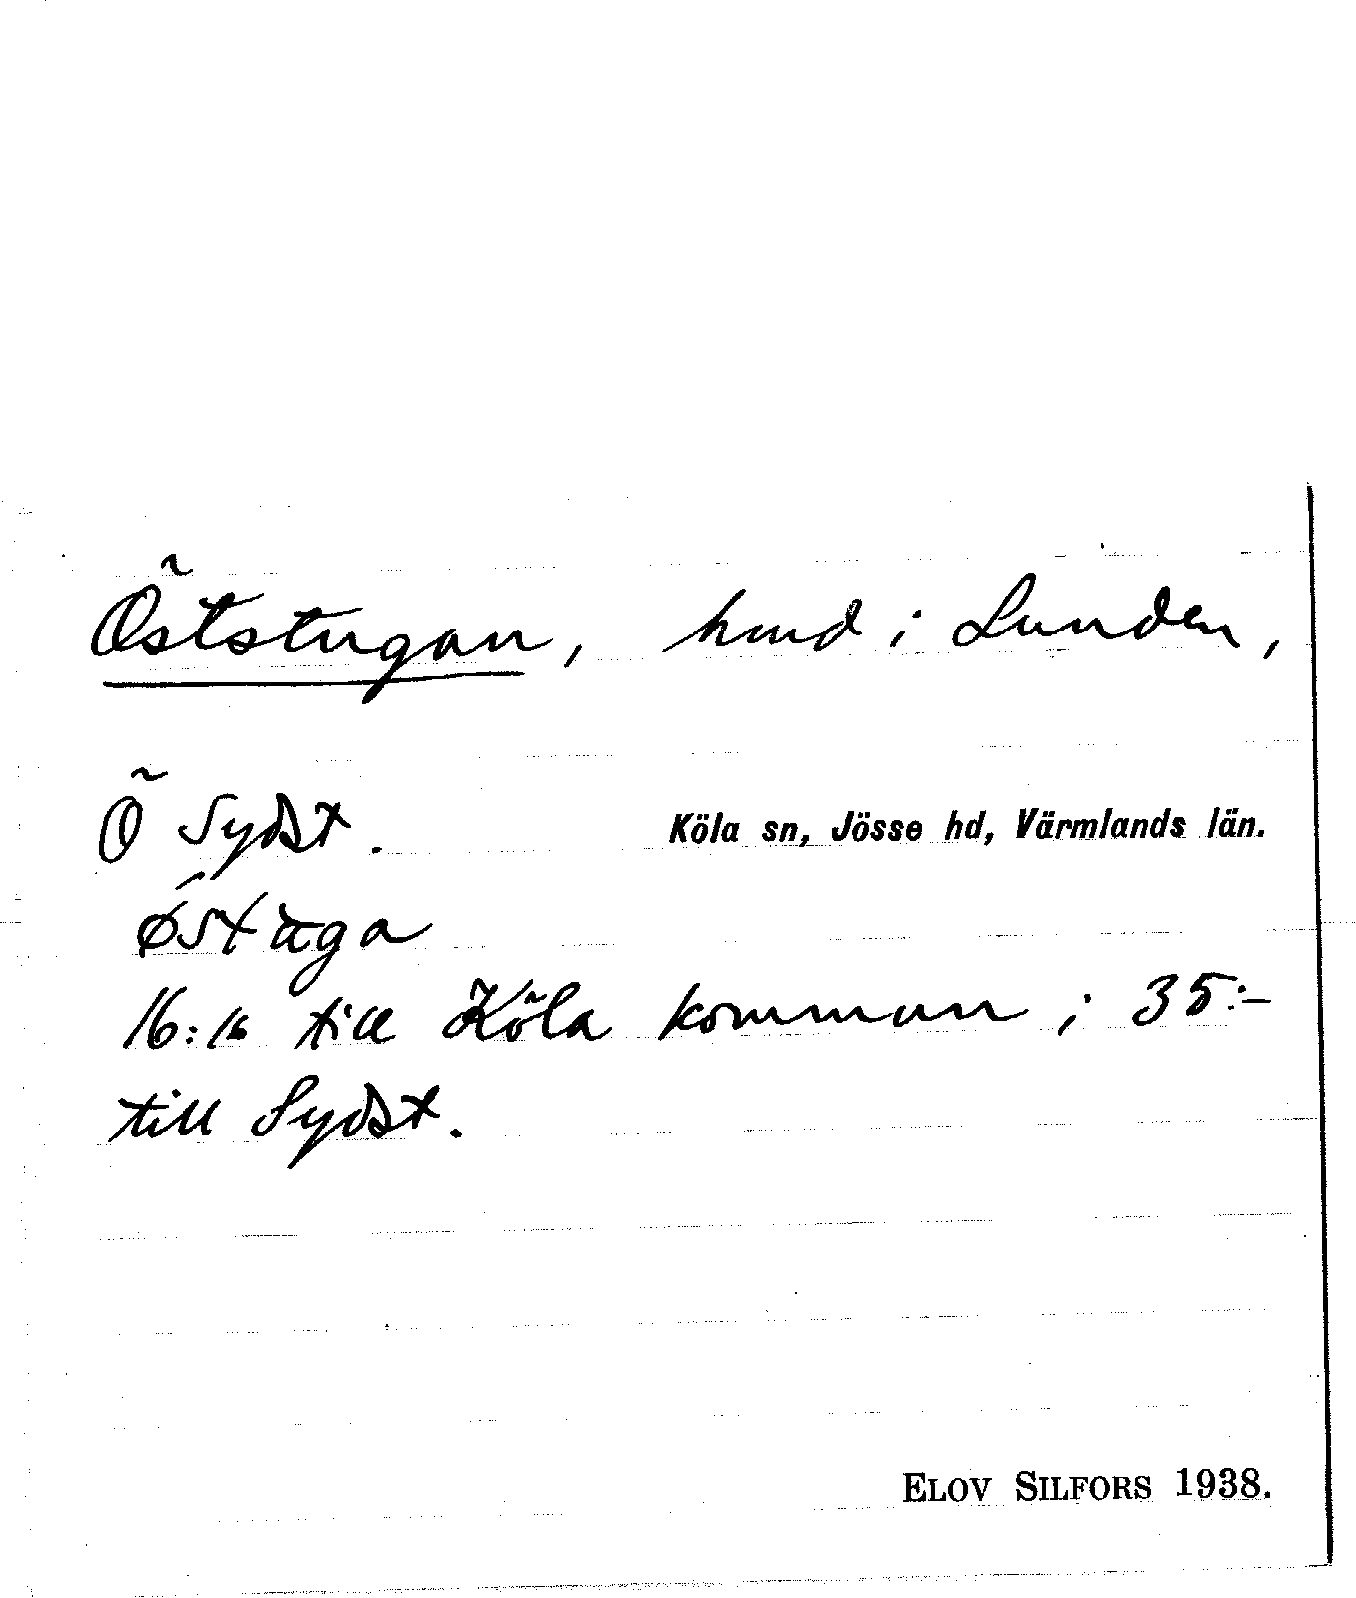 Öststugan, hmd i Lunden,
Ö Sydst. Köla sn, Jösse hd, Värmlands län.
16:16 till Köla kommun i 35:-
till Sydst.
ELOV SILFORS 1938.